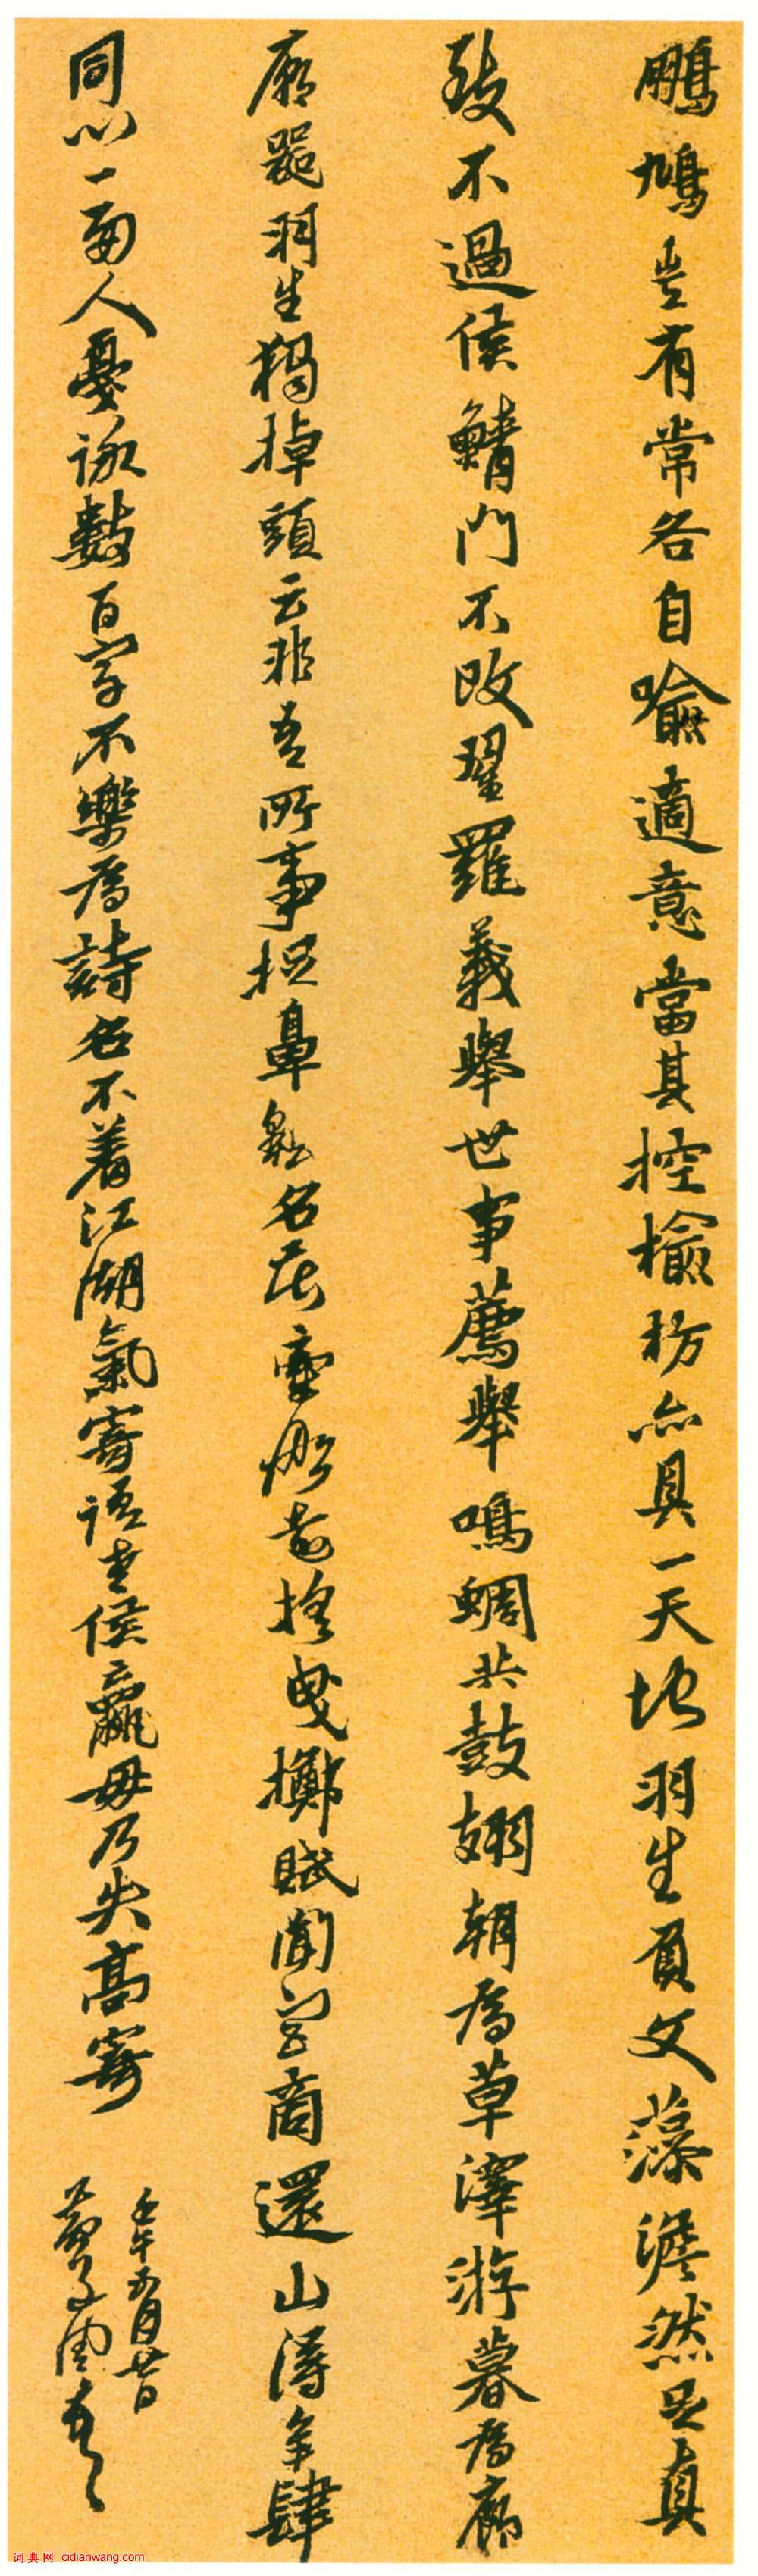 鵬鳩豈有常各自喻適意當其控檢枋亦具一天地羽生負文藻澹然足真
致不過侯鯖門不改翟羅義舉世事薦舉鳴蜩共鼓翅朝為草澤游暮為廊
廟器羽生獨掉頭云非吾所事掩鼻名在捨曳擲賦聞宮商還山得肆
同心一兩人憂詠數百字不樂為詩名不着江湖氣寄語老侯嬴毋乃失高寄
壬午五月廿日
词典网 cidianwang.com